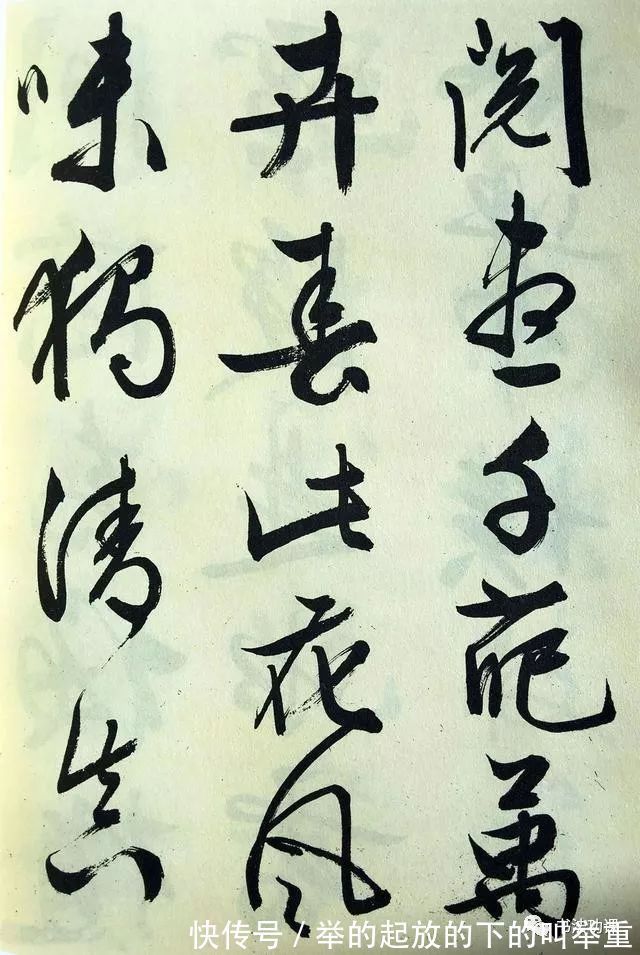 阅尽千葩万
卉春此花风
味独清真
快传号/举的起放的下的叫举重
书法功课